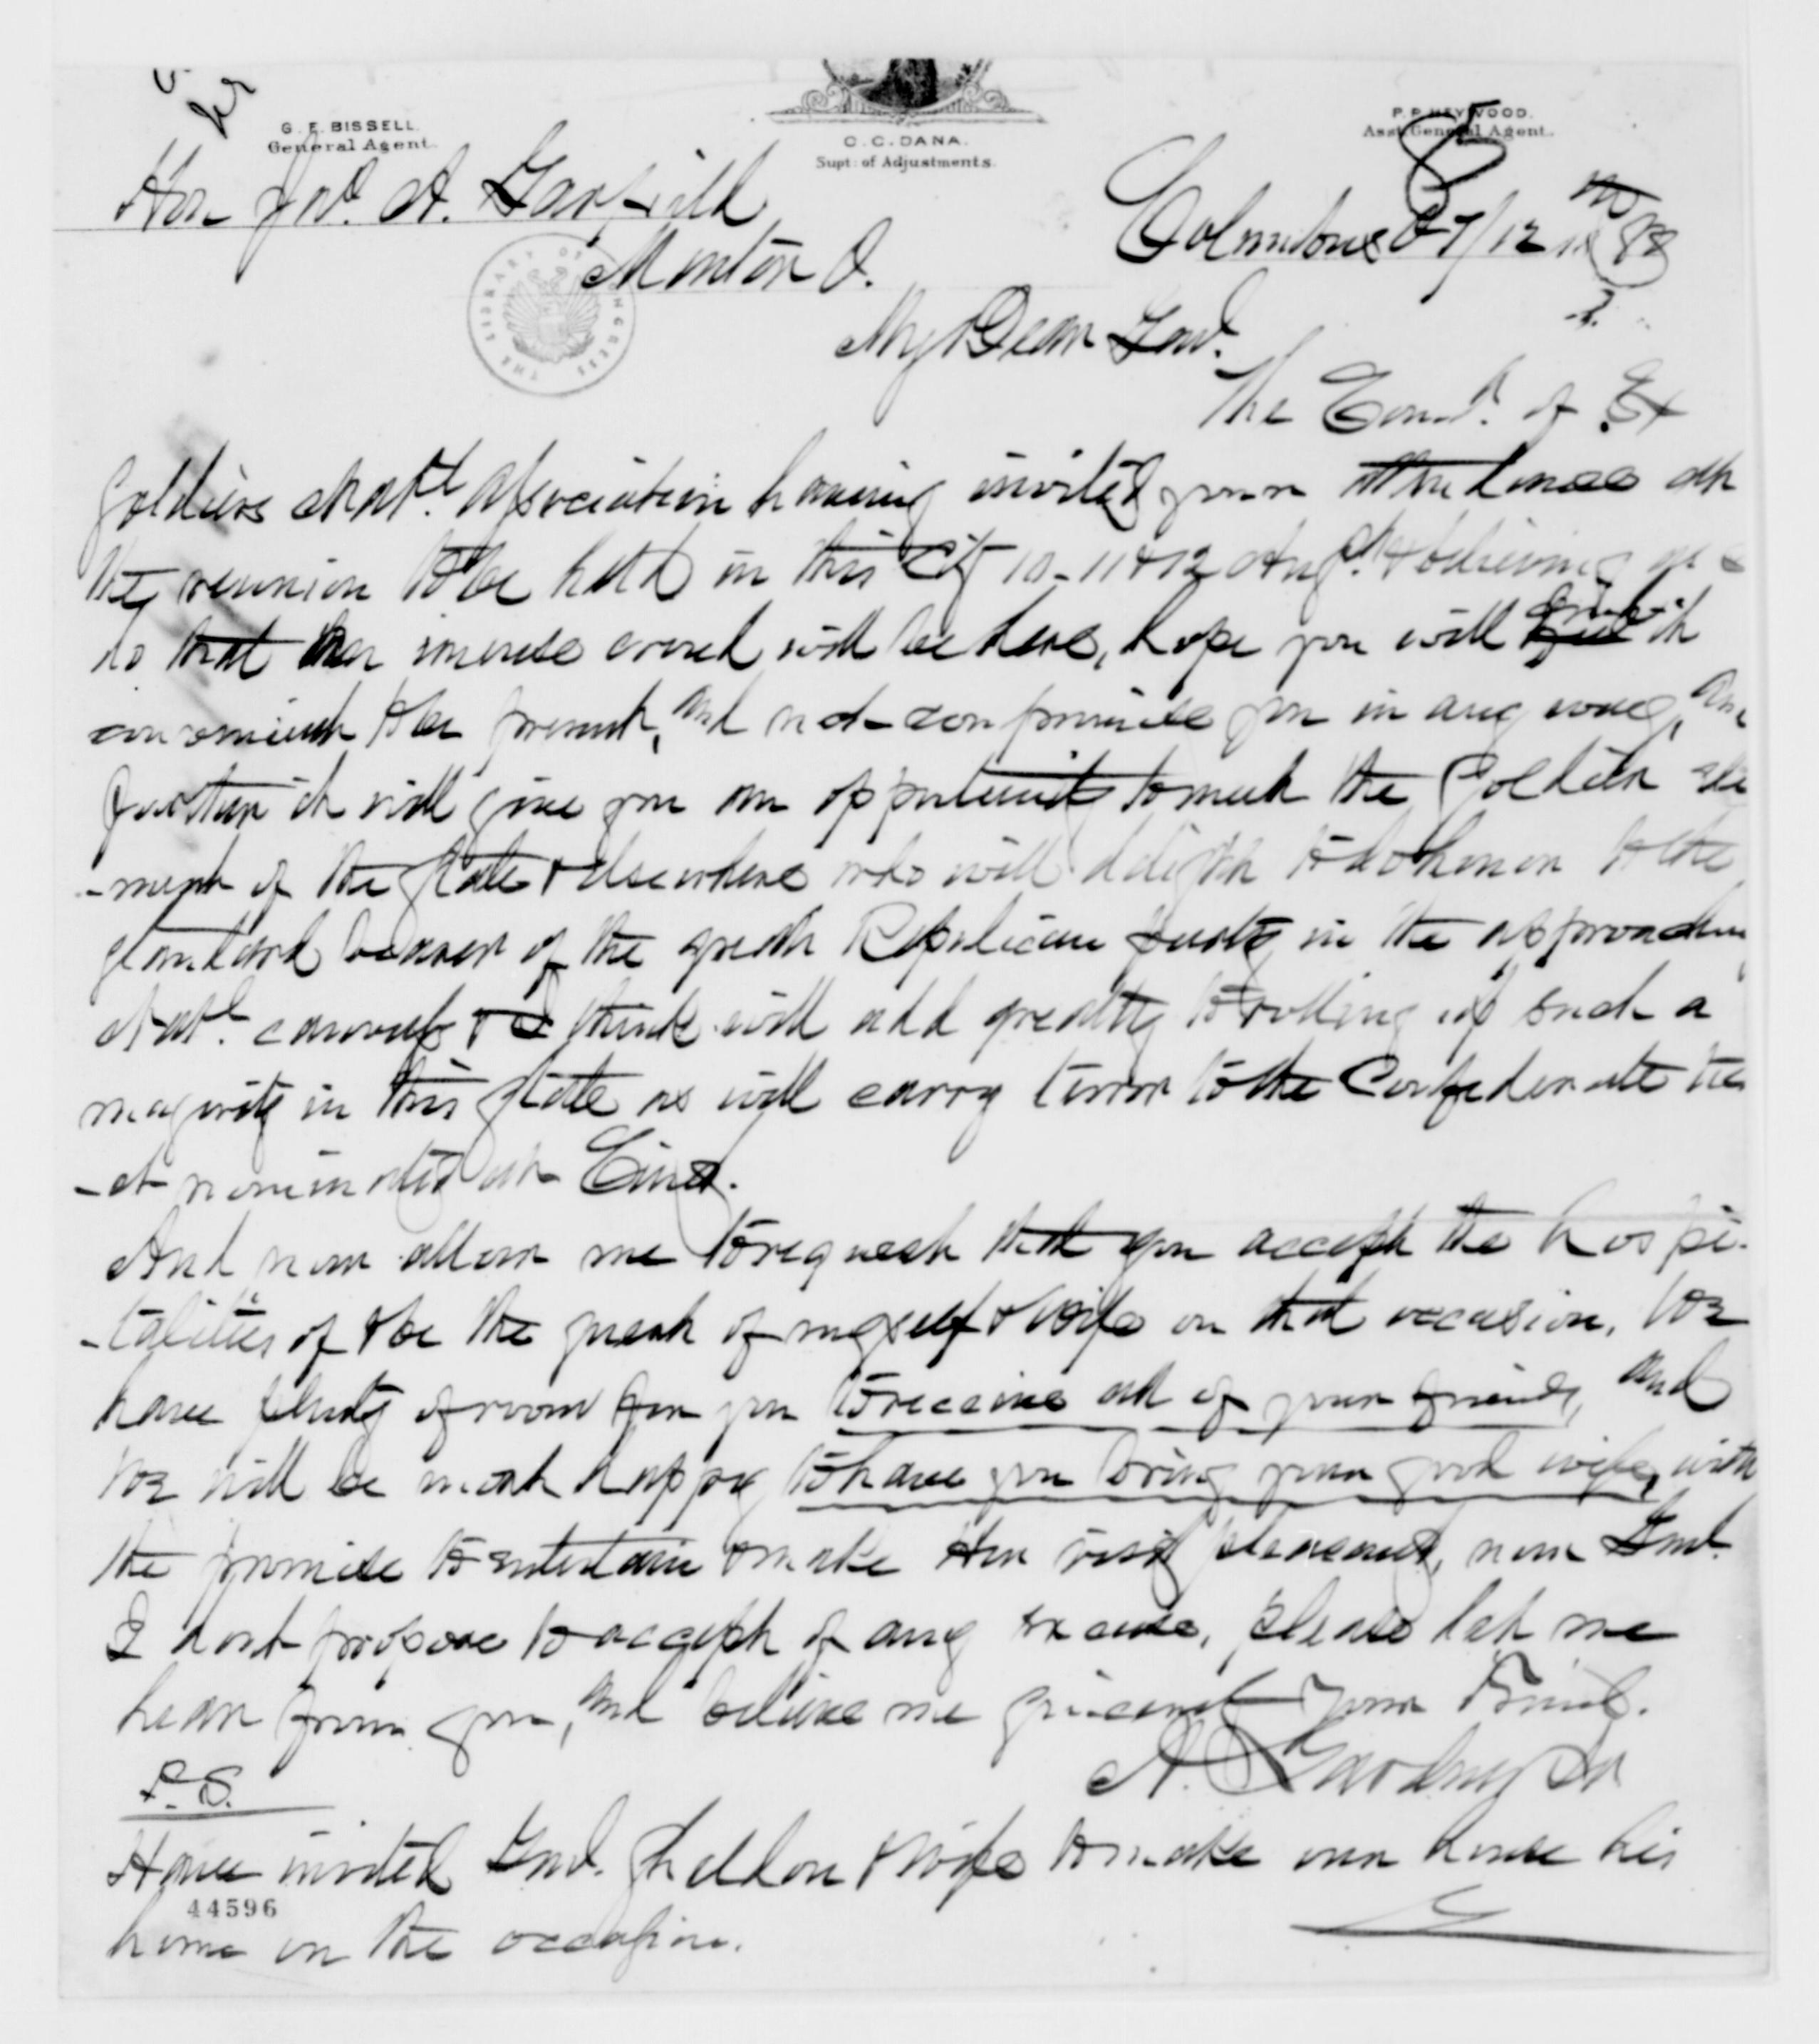 G. E. BISSELL.
General Agent.
C. C. DANA.
Supt: of Adjustments.
P. P. HEYWOOD.
Asst. General Agent.
Hon Jas. A. Garfield
Mentor O.
Columbus O 7/12 1880
THE LIBRARY OF CONGRESS
My Dear Genl.
The Comd. of Ex
Soldiers Natl. Association having invited your attendance at
the reunion to be held in this City 10-11 & 12 Augt. & believing as I
do that an imense crowd will be here, hope you will find it
convenient to be present, and not compromise you in any way, and
further it will give you an opportunity to meet the Soldier ele
-ment of the State & elsewhere who will delight to do honor to the
standard bearer of the great Republican party in the approaching
Natl. canvass & I think will add greatly to rolling up such a
majority in this State as will carry terror to the Confederate tick
-et nominated at Cind.
And now allow me to request that you accept the hospi-
-talities of & be the guest of myself & Wife on that occasion. We
have plenty of room for you to receive all of your friends, and
we will be most happy to have you bring your good wife, with
the promise to entertain & make Her visit pleasant, now Genl.
I dont propose to accept of any excuse, please let me
hear from you, and believe me sincerely your Friend.
A. Gardner Jr
P.S.
Have invited Genl. Sheldon & Wife to make our house his
44596
home on the occasion.
G